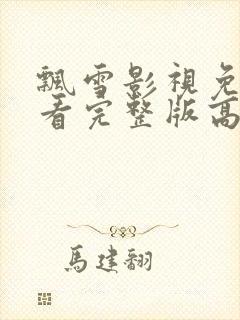 飄雪影視免
看完整版高
馬建翻